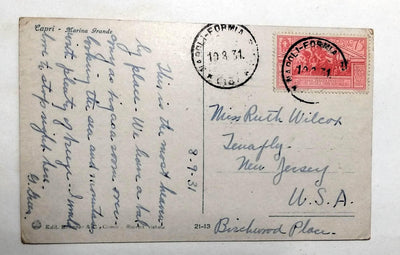 Capri - Marina Grande
8-9-31
This is the most heaven-
ly place. We have a bal-
cony as big as a room over-
looking the sea and mountains
most plenty of fruge. I would
love to stop right here.
NAPOLI-FORMIA
19.8.31
NAPOLI-FORMIA
19.8.31
Miss Ruth Wilcox
Tenafly
New Jersey
U.S.A.
Birchwood Place.
21-13